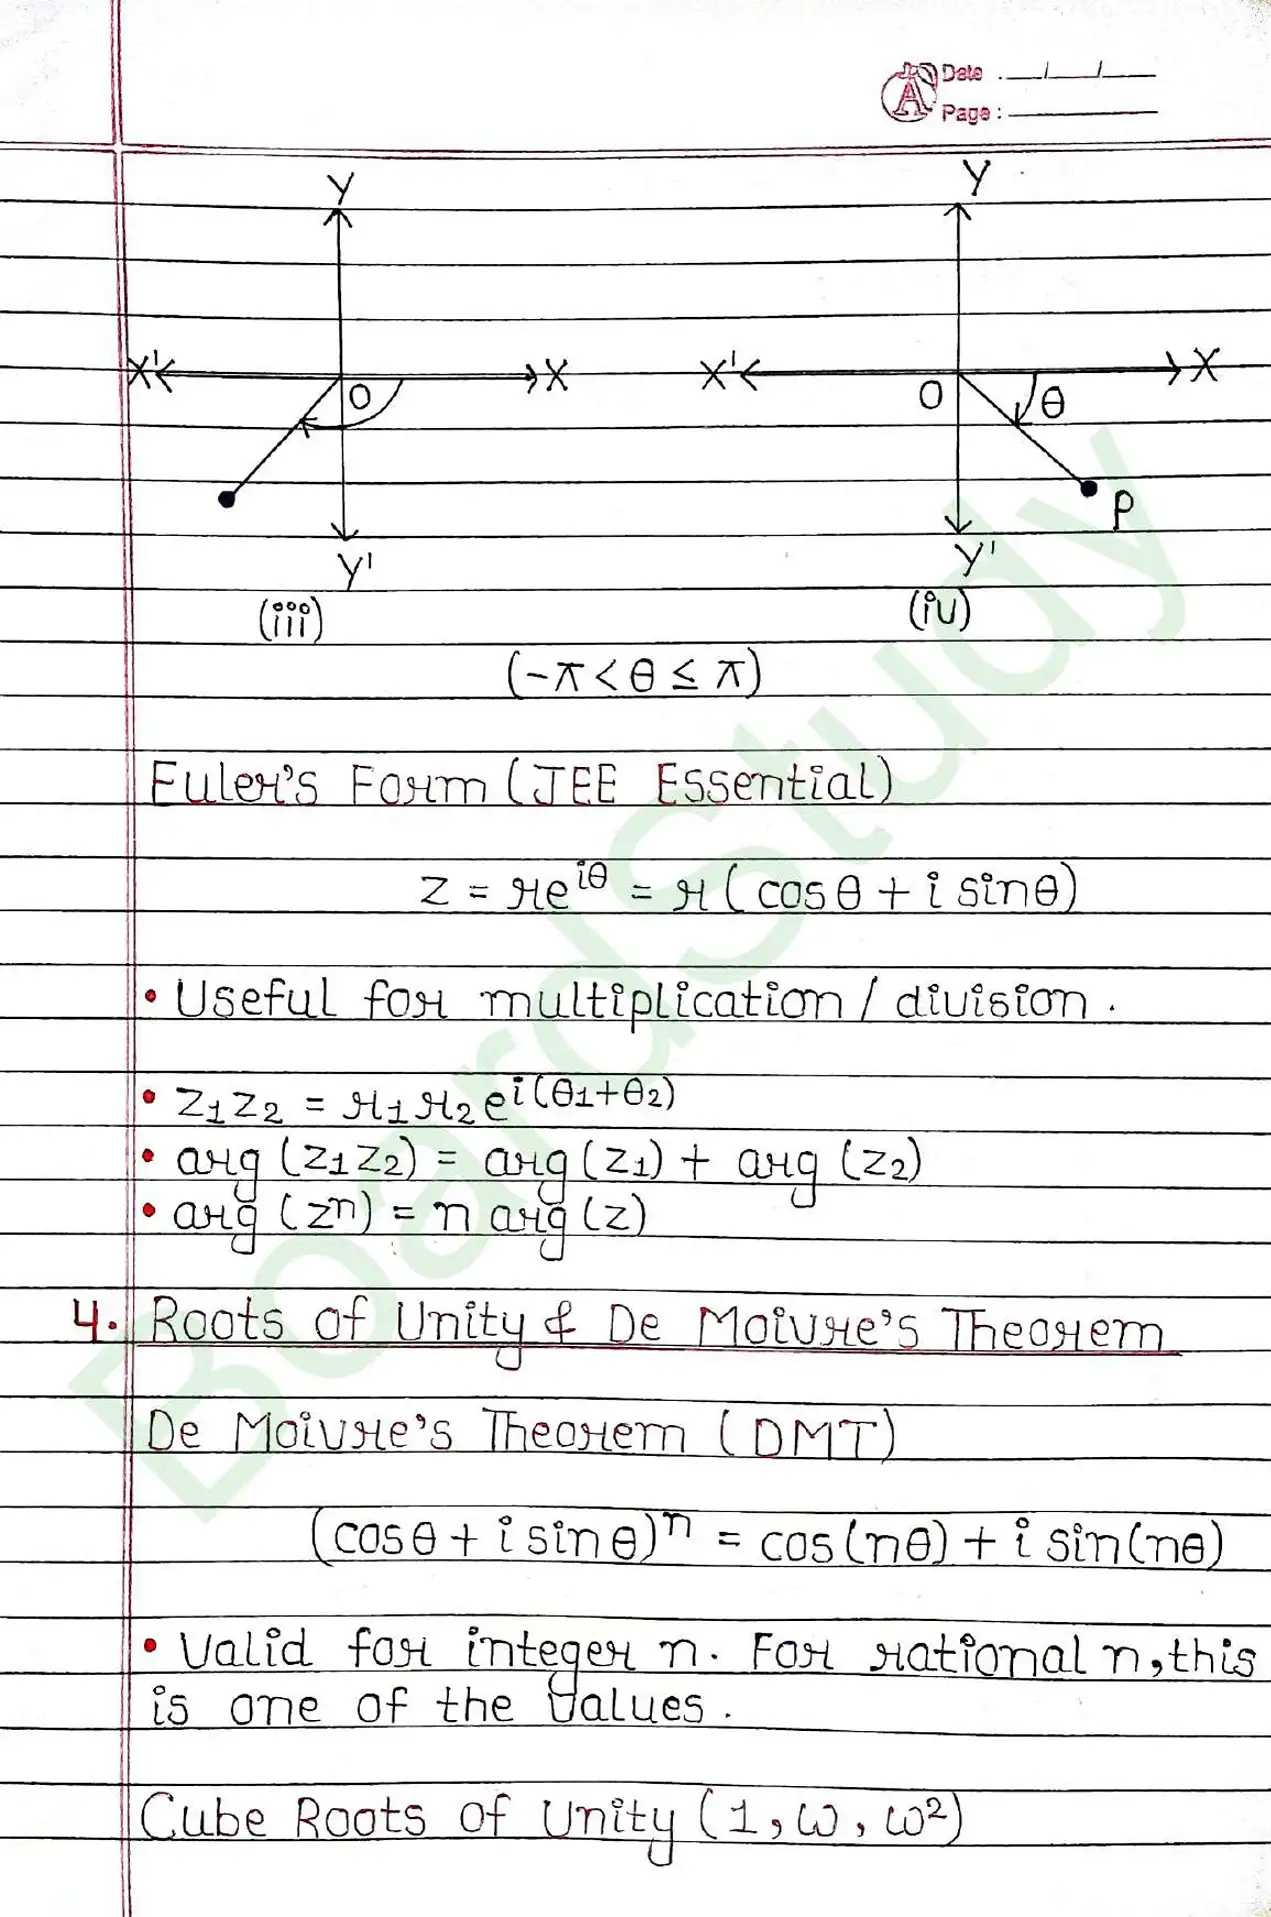 Date : __/__/__
Page :
Y Y
X' O X X' O θ X
P
Y' Y'
(iii) (iv)
(-π < θ ≤ π)
Euler's Form (JEE Essential)
z = re^{iθ} = r (cosθ + i sinθ)
• Useful for multiplication / division.
• z₁z₂ = r₁r₂e^{i(θ₁+θ₂)}
• arg (z₁z₂) = arg (z₁) + arg (z₂)
• arg (zⁿ) = n arg (z)
4. Roots of Unity & De Moivre's Theorem
De Moivre's Theorem (DMT)
(cosθ + i sinθ)ⁿ = cos(nθ) + i sin(nθ)
• Valid for integer n. For rational n, this
is one of the values.
Cube Roots of Unity (1, ω, ω²)
BoardStudy